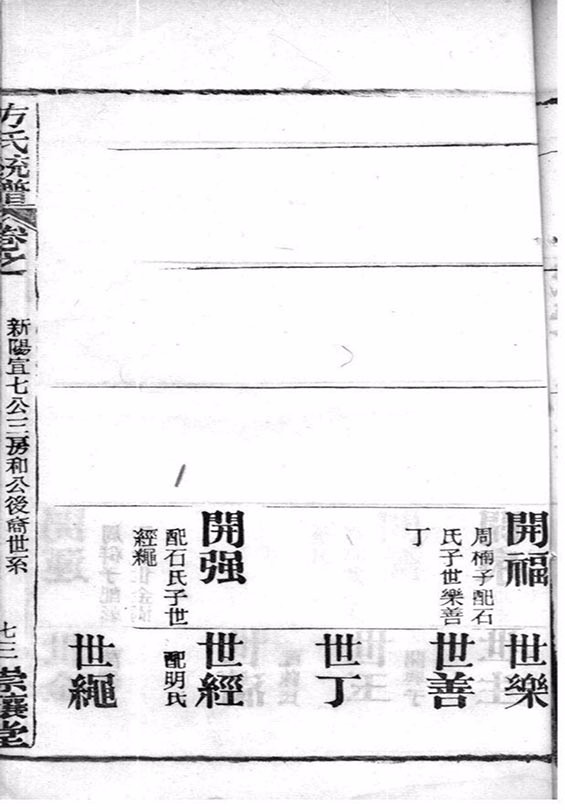 開福
周楠子配石
氏子世樂善
丁
世樂
世善
世丁
開强
配石氏子世
經繩
世經
配明氏
世繩
方氏統譜
卷之一
新陽宜七公三房和公後裔世系
七三
堂